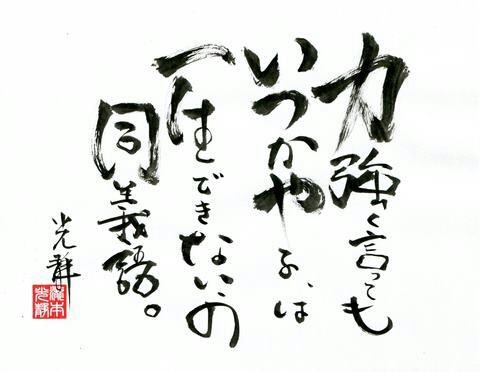 力強く言っても
いつかやる、は
一生できないの
同義語。
光静